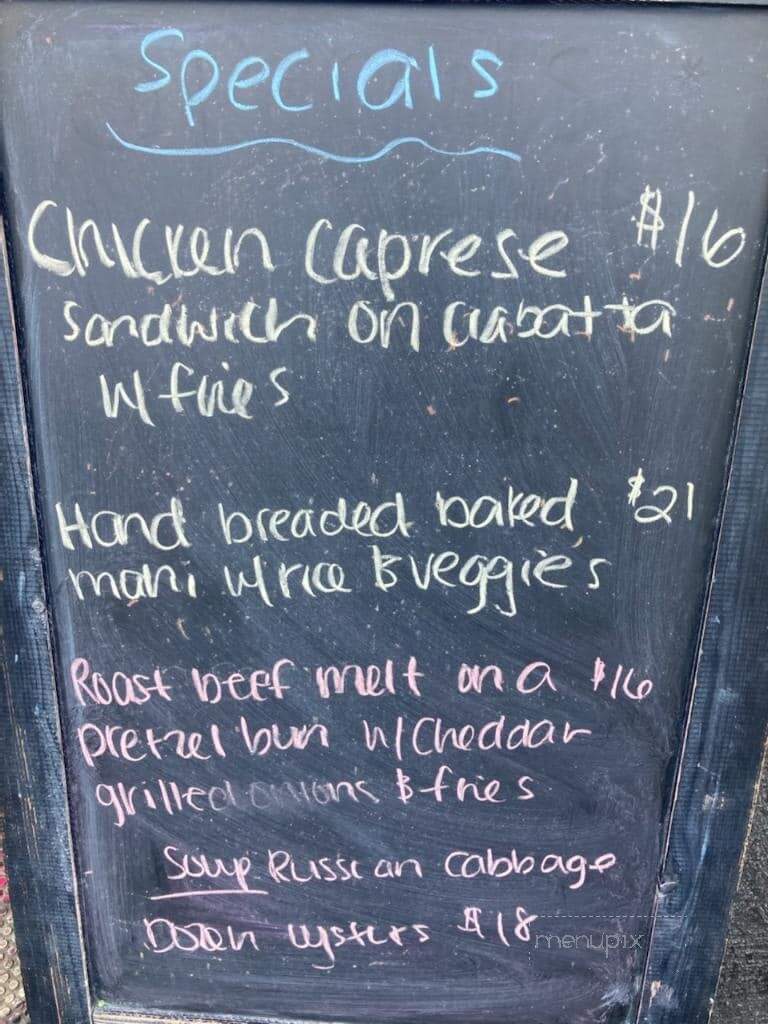 Specials
Chicken caprese $16
sandwich on ciabatta
w/ fries
Hand breaded baked $21
mahi w/ rice & veggies
Roast beef melt on a $16
pretzel bun w/ Cheddar
grilled onions & fries
Soup Russian cabbage
Dozen oysters $18
menupix